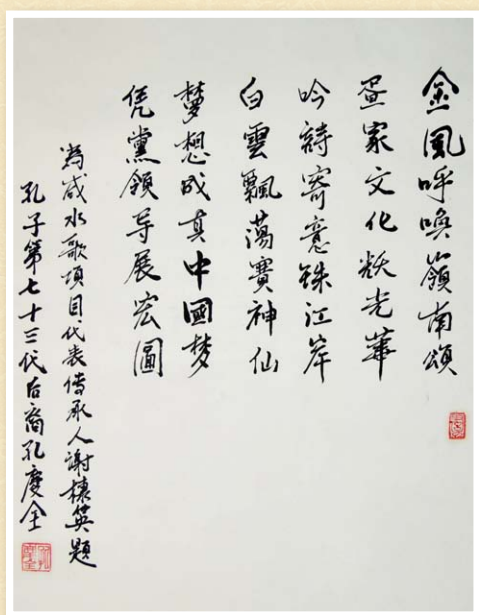 金風呼喚嶺南頌
疍家文化光華
吟詩寄意珠江岸
白雲飄蕩賽神仙
夢想成真中國梦
凭黨領导展宏圖
為咸水歌項目代表傳承人謝棣英題
孔子第七十三代后裔孔慶全